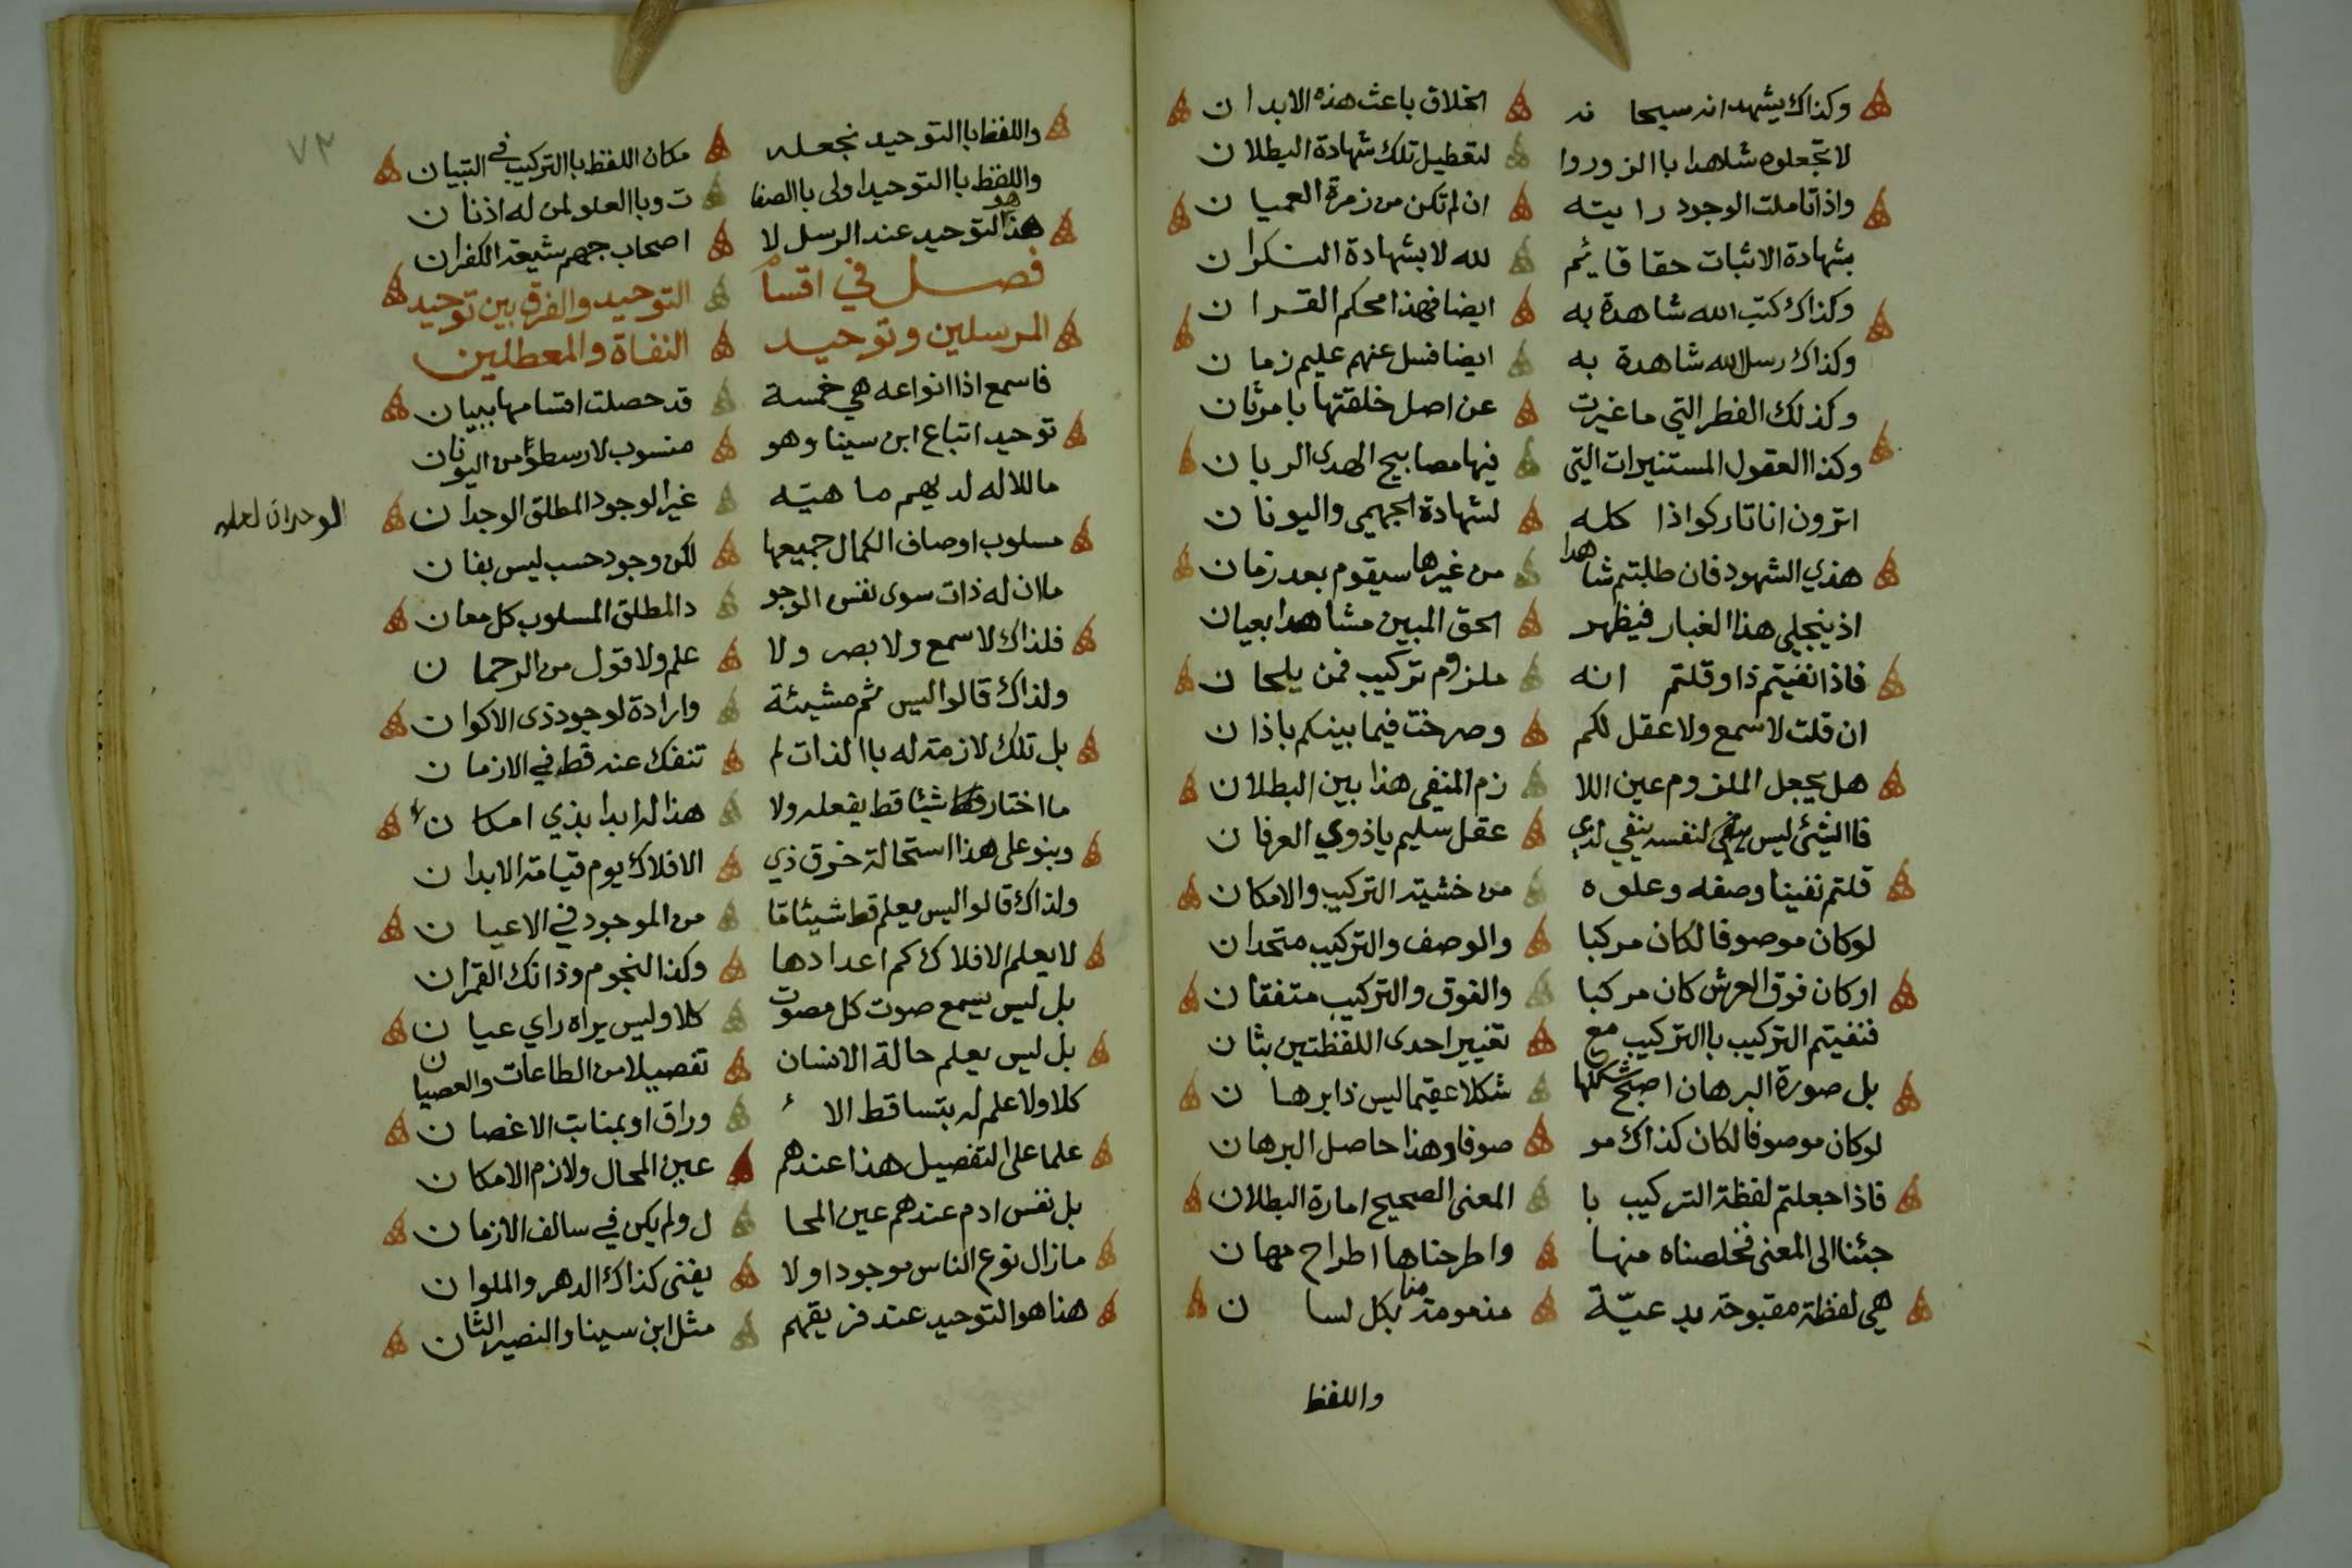 وكذاك يشهد انه سبحا نه الخلاق باعث هذه الابدان
لا تجعلوه شاهدا باالزوروا لتعطيل تلك شهادة البطلان
واذا تاملت الوجود رايته ان لم تكن من زمرة العميان
بشهادة الاثبات حقا قايم لله لا بشهادة النكران
وكذاك كتب الله شاهدة به ايضا فهذا محكم القران
وكذاك رسل الله شاهدة به ايضا فسل عنهم عليم زمان
وكذلك الفطر التي ما غيرت عن اصل خلقتها بامرثان
وكذا العقول المستنيرات التي فيها مصابيح الهدى الربان
اترون انا تاركوا ذا كله لشهادة الجهمي واليونان
هذي الشهود فان طلبتم شاهدا من غيرها سيقوم بعد زمان
اذ ينجلي هذا الغبار فيظهر الحق المبين مشاهدا بعيان
فاذا نفيتم ذا وقلتم انه ملزوم تركيب فمن يلحان
ان قلت لا سمع ولا عقل لكم وصرخت فيما بينكم باذان
هل يجعل الملزوم عين اللا زم المنفي هذا بين البطلان
فاالشئ ليس لنفسه ينفي لدي عقل سليم ياذوي العرفان
قلتم نفينا وصفه وعلوه من خشية التركيب والامكان
لوكان موصوفا لكان مركبا والوصف والتركيب متحدان
اوكان فوق العرش كان مركبا والفوق والتركيب متفقان
فنفيتم التركيب باالتركيب مع تغيير احدى اللفظتين بثان
بل صورة البرهان اصبح شكلها شكلا عقيما ليس ذا برهان
لوكان موصوفا لكان كذاك مو صوفا وهذا حاصل البرهان
فاذا جعلتم لفظة التركيب با المعنى الصحيح امارة البطلان
جئنا الى المعنى فخلصناه منها واطرحناها اطراح مهان
هي لفظة مقبوحة بدعيّة مذمومة منا بكل لسان
واللفظ
٧٢
واللفظ باالتوحيد نجعله مكان اللفظ باالتركيب في التبيان
واللفظ باالتوحيد اولى باالصفا ت وباالعلو لمن له اذنان
هذا هو التوحيد عند الرسل لا اصحاب جهم شيعة الكفران
فصل في اقسام التوحيد والفرق بين توحيد
المرسلين وتوحيد النفاة والمعطلين
فاسمع اذا انواعه هي خمسة قد حصلت اقسامها ببيان
توحيد اتباع ابن سينا وهو منسوب لارسطو من اليونان
ماللاله لديهم ماهيّه غير الوجود المطلق الوجدان
الوحدان لعله
مسلوب اوصاف الكمال جميعها لكن وجود حسب ليس بفان
ماان له ذات سوى نفس الوجو د المطلق المسلوب كل معان
فلذاك لا سمع ولا بصر ولا علم ولا قول من الرحمان
ولذاك قالوا ليس ثم مشيئة وارادة لوجود ذى الاكوان
بل تلك لازمة له باالذات لم تنفك عنه قط في الازمان
ما اختار شيئا قط يفعله ولا هذا له ابدا بذي امكان
وبنو على هذا استحالة خرق ذي الافلاك يوم قيامة الابدان
ولذاك قالوا ليس يعلم قط شيئا ما من الموجود في الاعيان
لا يعلم الافلاك كم اعدادها وكذا النجوم وذانك القمران
بل ليس يسمع صوت كل مصوت كلا وليس يراه راي عيان
بل ليس يعلم حالة الانسان تفصيلا من الطاعات والعصيان
كلا ولا علم له بتساقط الا وراق او بمنابت الاغصان
علما على التفصيل هذا عندهم عين المحال ولازم الامكان
بل نفس ادم عندهم عين المحا ل ولم يكن في سالف الازمان
مازال نوع الناس موجودا ولا يفنى كذاك الدهر والملوان
هذا هو التوحيد عند فريقهم مثل ابن سينا والنصير الثان